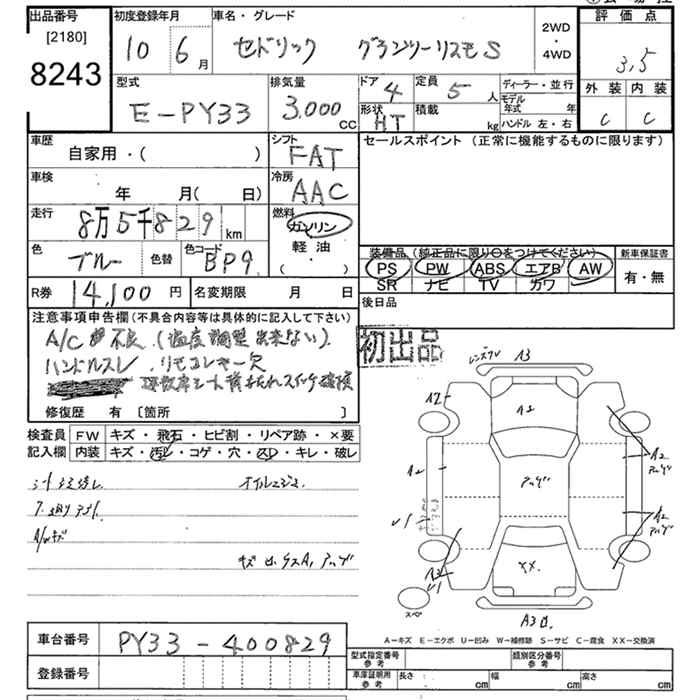 出品番号
[2180]
8243
初度登録年月
10 6月
車名・グレード
セドリック グランツーリスモS
2WD
・
4WD
評価点
3.5
外装 内装
C C
型式
E-PY33
排気量
3.000 CC
ドア 4
定員 5人
形状 HT
積載 kg
ディーラー・並行
モデル年式 年
ハンドル 左・右
車歴
自家用・( )
シフト FAT
車検
年 月( 日)
冷房 AAC
走行 8万5千829 km
燃料
ガソリン
軽油
・( )
色 ブルー
色替
色コード BP9
R券 14,100 円
名変期限 月 日
セールスポイント (正常に機能するものに限ります)
装備品 (純正品に限り○をつけてください)
PS PW ABS エアB AW
SR ナビ TV カワ
新車保証書
有・無
後日品
注意事項申告欄 (不具合内容等は具体的に記入して下さい)
A/C 不良 (温度調整出来ない).
ハンドルスレ リモコンキー欠
修復歴 有 [箇所 ]
初出品
検査員記入欄
FW キズ・飛石・ヒビ割・リペア跡・×要
内装 キズ・汚レ・コゲ・穴・スレ・キレ・破レ
A3
A2
A1
A2
アッゲ
A2
A2
アッゲ
A2
アッゲ
U1
A3
U1
XX.
スペ
A3
A-キズ E-エクボ U-凹み W-補修跡 S-サビ C-腐食 XX-交換済
車台番号 PY33-400829
登録番号
型式指定番号 参考
類別区分番号 参考
車庫証明用 参考
長さ cm
幅 cm
高さ cm